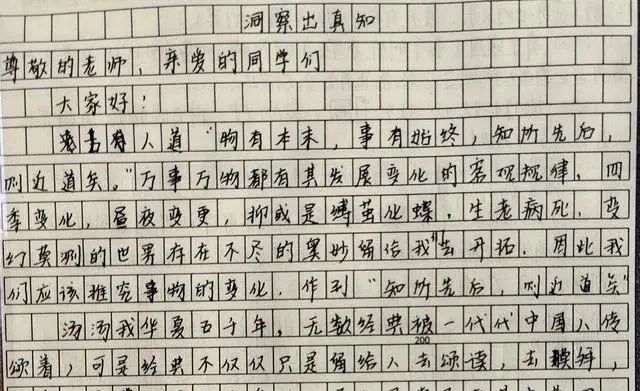 洞察出真知
尊敬的老师，亲爱的同学们
大家好！
人道“物有本末，事有始终，知所先后，
则近道矣。”万事万物都有其发展变化的客观规律，四
季变化，昼夜变更，抑或是缚茧化蝶，生老病死，变
幻莫测的世界存在不尽的奥妙留给我们去开拓，因此我
们应该推究事物的变化，作到“知所先后，则近道矣”
汤汤我华夏五千年，无数经典被一代代中国人传
200
颂着，可是经典不仅仅只是留给人去颂读，去膜拜，